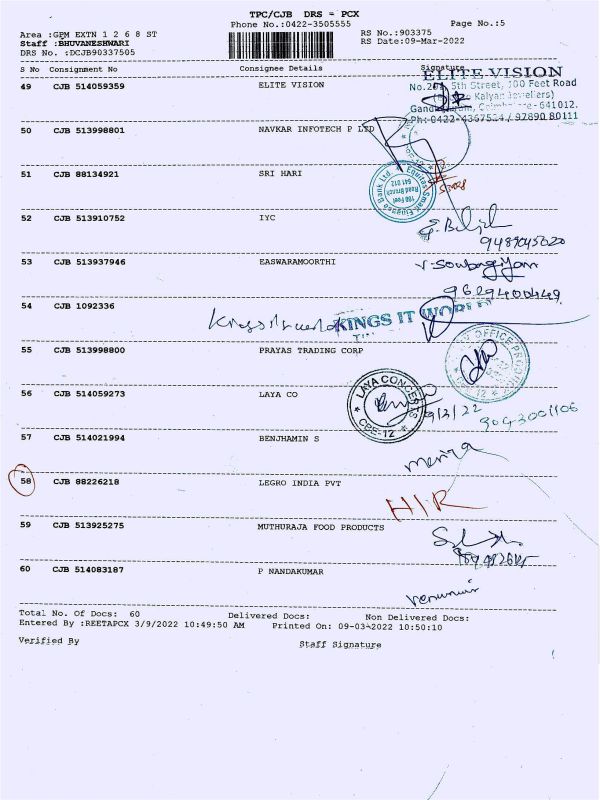 TPC/CJB DRS = PCX
Phone No.:0422-3505555
Page No.:5
Area :GPM EXTN 1 2 6 8 ST
RS No.:903375
Staff :BHUVANESHWARI
RS Date:09-Mar-2022
DRS No. :DCJB90337505
S No Consignment No Consignee Details Signature
49 CJB 514059359 ELITE VISION
ELITE VISION
5th Street, 100 Feet Road
Kalyan Jewellers)
Coimbatore-641012.
Ph: 0422-4367534 / 92890 80111
50 CJB 513998801 NAVKAR INFOTECH P LTD
51 CJB 88134921 SRI HARI
Equitas Small Finance Bank Ltd.
100 Feet
Road Branch
641 012
52 CJB 513910752 IYC
9489045020
53 CJB 513937946 EASWARAMOORTHI
V. Sowbagiyam
9629400449
54 CJB 1092336
KINGS IT WORLD
55 CJB 513998800 PRAYAS TRADING CORP
56 CJB 514059273 LAYA CO
LAYA CONCEPTS
CBE-12
9/3/22
9043001106
57 CJB 514021994 BENJHAMIN S
58 CJB 88226218 LEGRO INDIA PVT
HIR
59 CJB 513925275 MUTHURAJA FOOD PRODUCTS
60 CJB 514083187 P NANDAKUMAR
Total No. Of Docs: 60 Delivered Docs: Non Delivered Docs:
Entered By :REETAPCX 3/9/2022 10:49:50 AM Printed On: 09-03-2022 10:50:10
Verified By Staff Signature